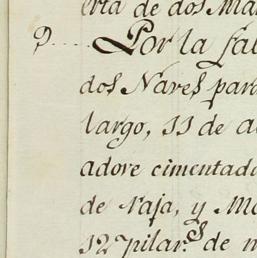 erta de dos Ma
9.... Por la fal
dos Naves para
largo, 11 de a
adore cimentado
de raja, y Ma
12 pilar.s de m